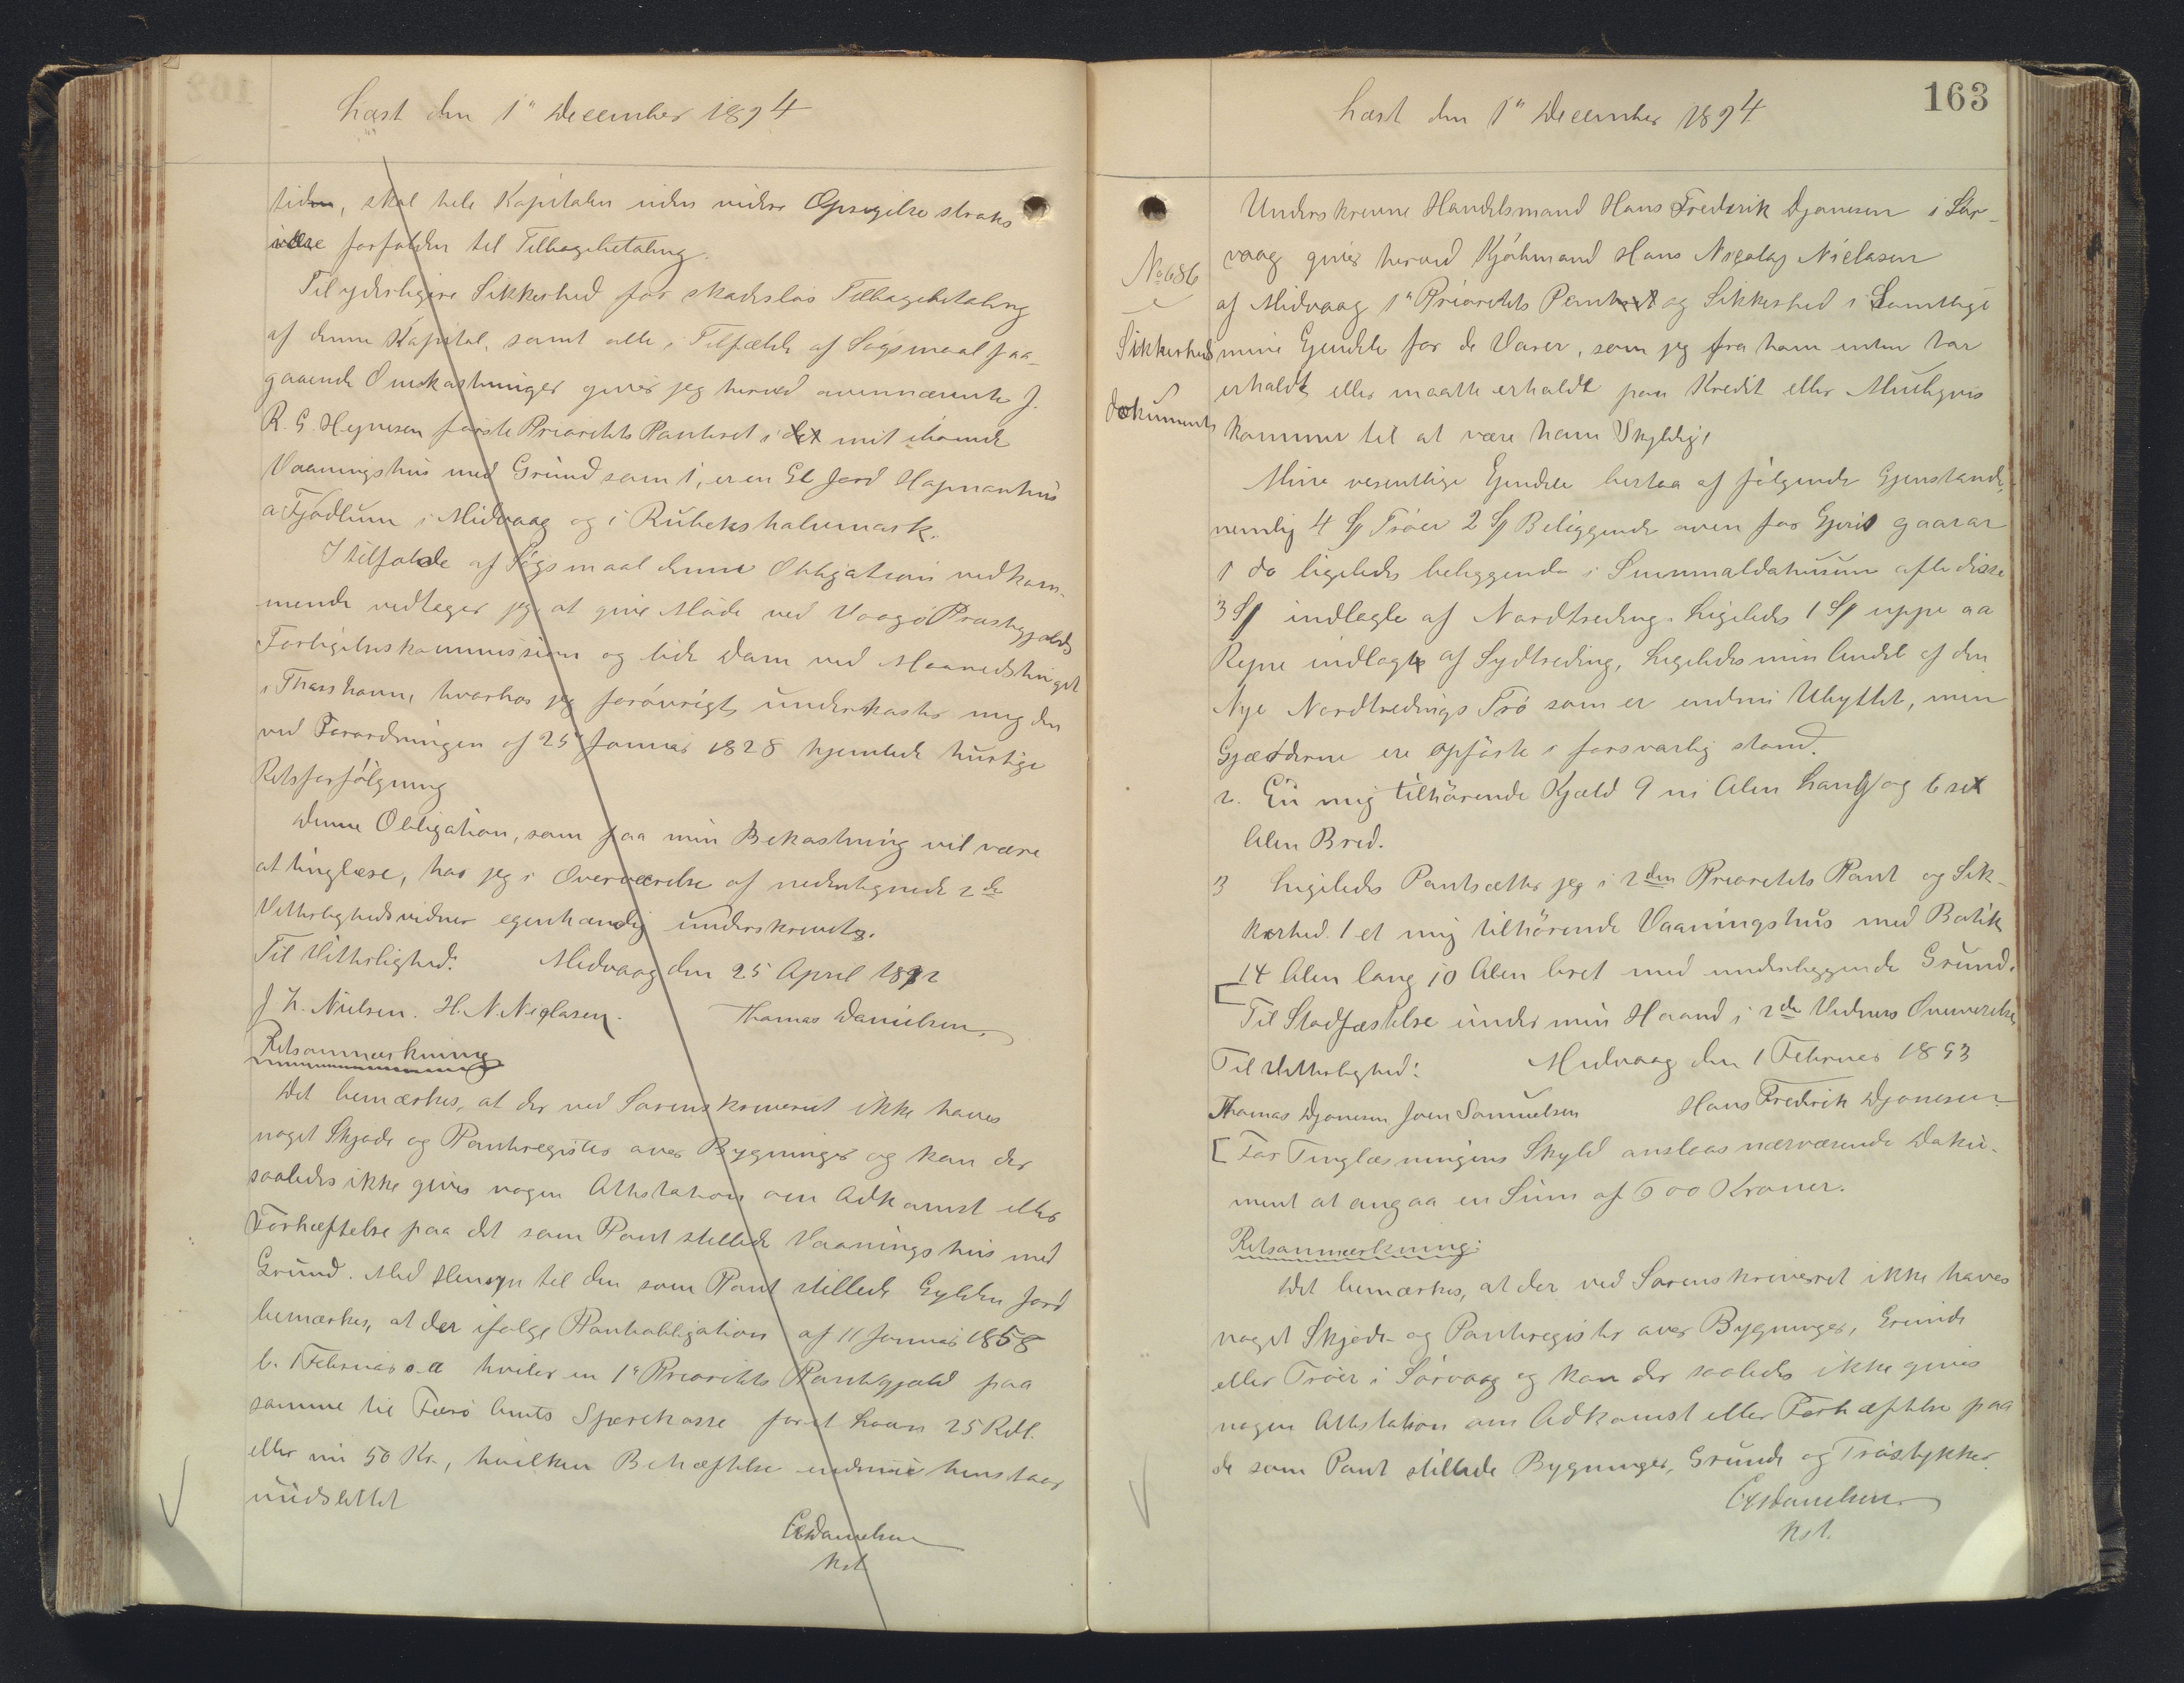 Læst den 1" December 1894
tiden, skal hele Kapitalen uden videre Opsigelse straks
være forfalden til Tilbagebetaling.
Til yderligere Sikkerhed for skadeslös Tilbagebetaling
af denne Kapital, samt alle i Tilfælde af Sögsmaal paa-
gaaende Omkostninger giver jeg herved ovennævnte J.
R. G. Heynesen förste Prioritets Panteret i det mit iboende
Vaaningshus med Grund som 1, er en Gl Jord Hapnanhus
a Fjödlum i Midvaag og i Rubekshalvemark.
I tilfælde af Sögsmaal denne Obligation vedkom-
mende vedtager jeg at give Möde ved Vaagö Præstegjælds
Forligelseskommission og lide Dom ved Maanedstinget
i Thorshavn, hvorhos jeg forövrigt underkaster mig den
ved Forordningen af 25" Januar 1828 hjemlede hurtige
Retsforfölgning
Denne Obligation, som paa min Bekostning vil være
at tinglæse, har jeg i Overværelse af nedentegnede 2de
Vitterlighedsvidner egenhændig underskrevet.
Til Vitterlighed: Midvaag den 25 April 1892
J. Z. Nielsen. H. N. Niclasen. Thomas Danielsen
Retsanmærkning
Det bemærkes, at der ved Sorenskriveriet ikke haves
noget Skjöde og Panteregister over Bygninger og kan der
saaledes ikke gives nogen Attestation om Adkomst eller
Forhæftelse paa det som Pant stillede Vaaningshus med
Grund. Med Hensyn til den som Pant stillede Gylden Jord
bemærkes, at der ifölge Panteobligation af 11 Januar 1858
l. 1 Februar s. a hviler en 1" Prioritets Pantegjæld paa
samme til Færö Amts Sparekasse for et Laan 25 Rdl.
eller nu 50 Kr., hvilken Behæftelse endnu henstaar
uudslettet
Danielsen
Kst
163
Læst den 1" December 1894
No 686
Sikkerheds
dokument
Underskrevne Handelsmand Hans Fredrik Djonesen i Sör-
vaag giver herved Kjöbmand Hans Nicolaj Niclasen
af Midvaag 1" Prioritets Panteret og Sikkerhed i Samtlige
mine Ejendele for de Varer, som jeg fra ham enten har
erholdt eller maatte erholdt paa Kredit eller Muligvis
kommer til at være ham Skyldig!
Mine væsentlige Ejendele bestaa af fölgende Gjenstande,
nemlig 4 Sp Tröer 2 Sp Beliggende oven for Gjeris gaarar
1 do ligeledes beliggende i Summaldahusum alle disse
3 Sp indlagte af Nordtreding. Ligeledes 1 Sp uppe aa
Reyne indlagt af Sydtreding, Ligeledes min Andel af den
Nye Nordtredings Trö som er endnu Ubyttet, men
Gjærderne ere opförte i forsvarlig stand.
2. En mig tilhörende Kjæld 9 ni Alen Lang og 6 sex
Alen Bred.
3 Ligeledes Pantsætter jeg i 2den Prioritets Pant og Sik-
kerhed. 1 et mig tilhörende Vaaningshus med Butik
14 Alen lang 10 Alen bret med underliggende Grund.
Til Stadfæstelse under min Haand i 2de Vidners Overværelse
Til Vitterlighed: Midvaag den 1 Februar 1893
Thomas Djonesen Joen Samuelsen Hans Fredrik Djonesen
[For Tinglæsningens Skyld anslaas nærværende Doku-
ment at angaa en Sum af 600 Kroner.
Retsanmærkning:
Det bemærkes, at der ved Sorenskriveriet ikke haves
noget Skjöde og Panteregister over Bygninger, Grunde
eller Tröer i Sörvaag og kan der saaledes ikke gives
nogen Attestation om Adkomst eller Forhæftelse paa
de som Pant stillede Bygninger, Grunde og Tröstykker.
Danielsen
Kst.